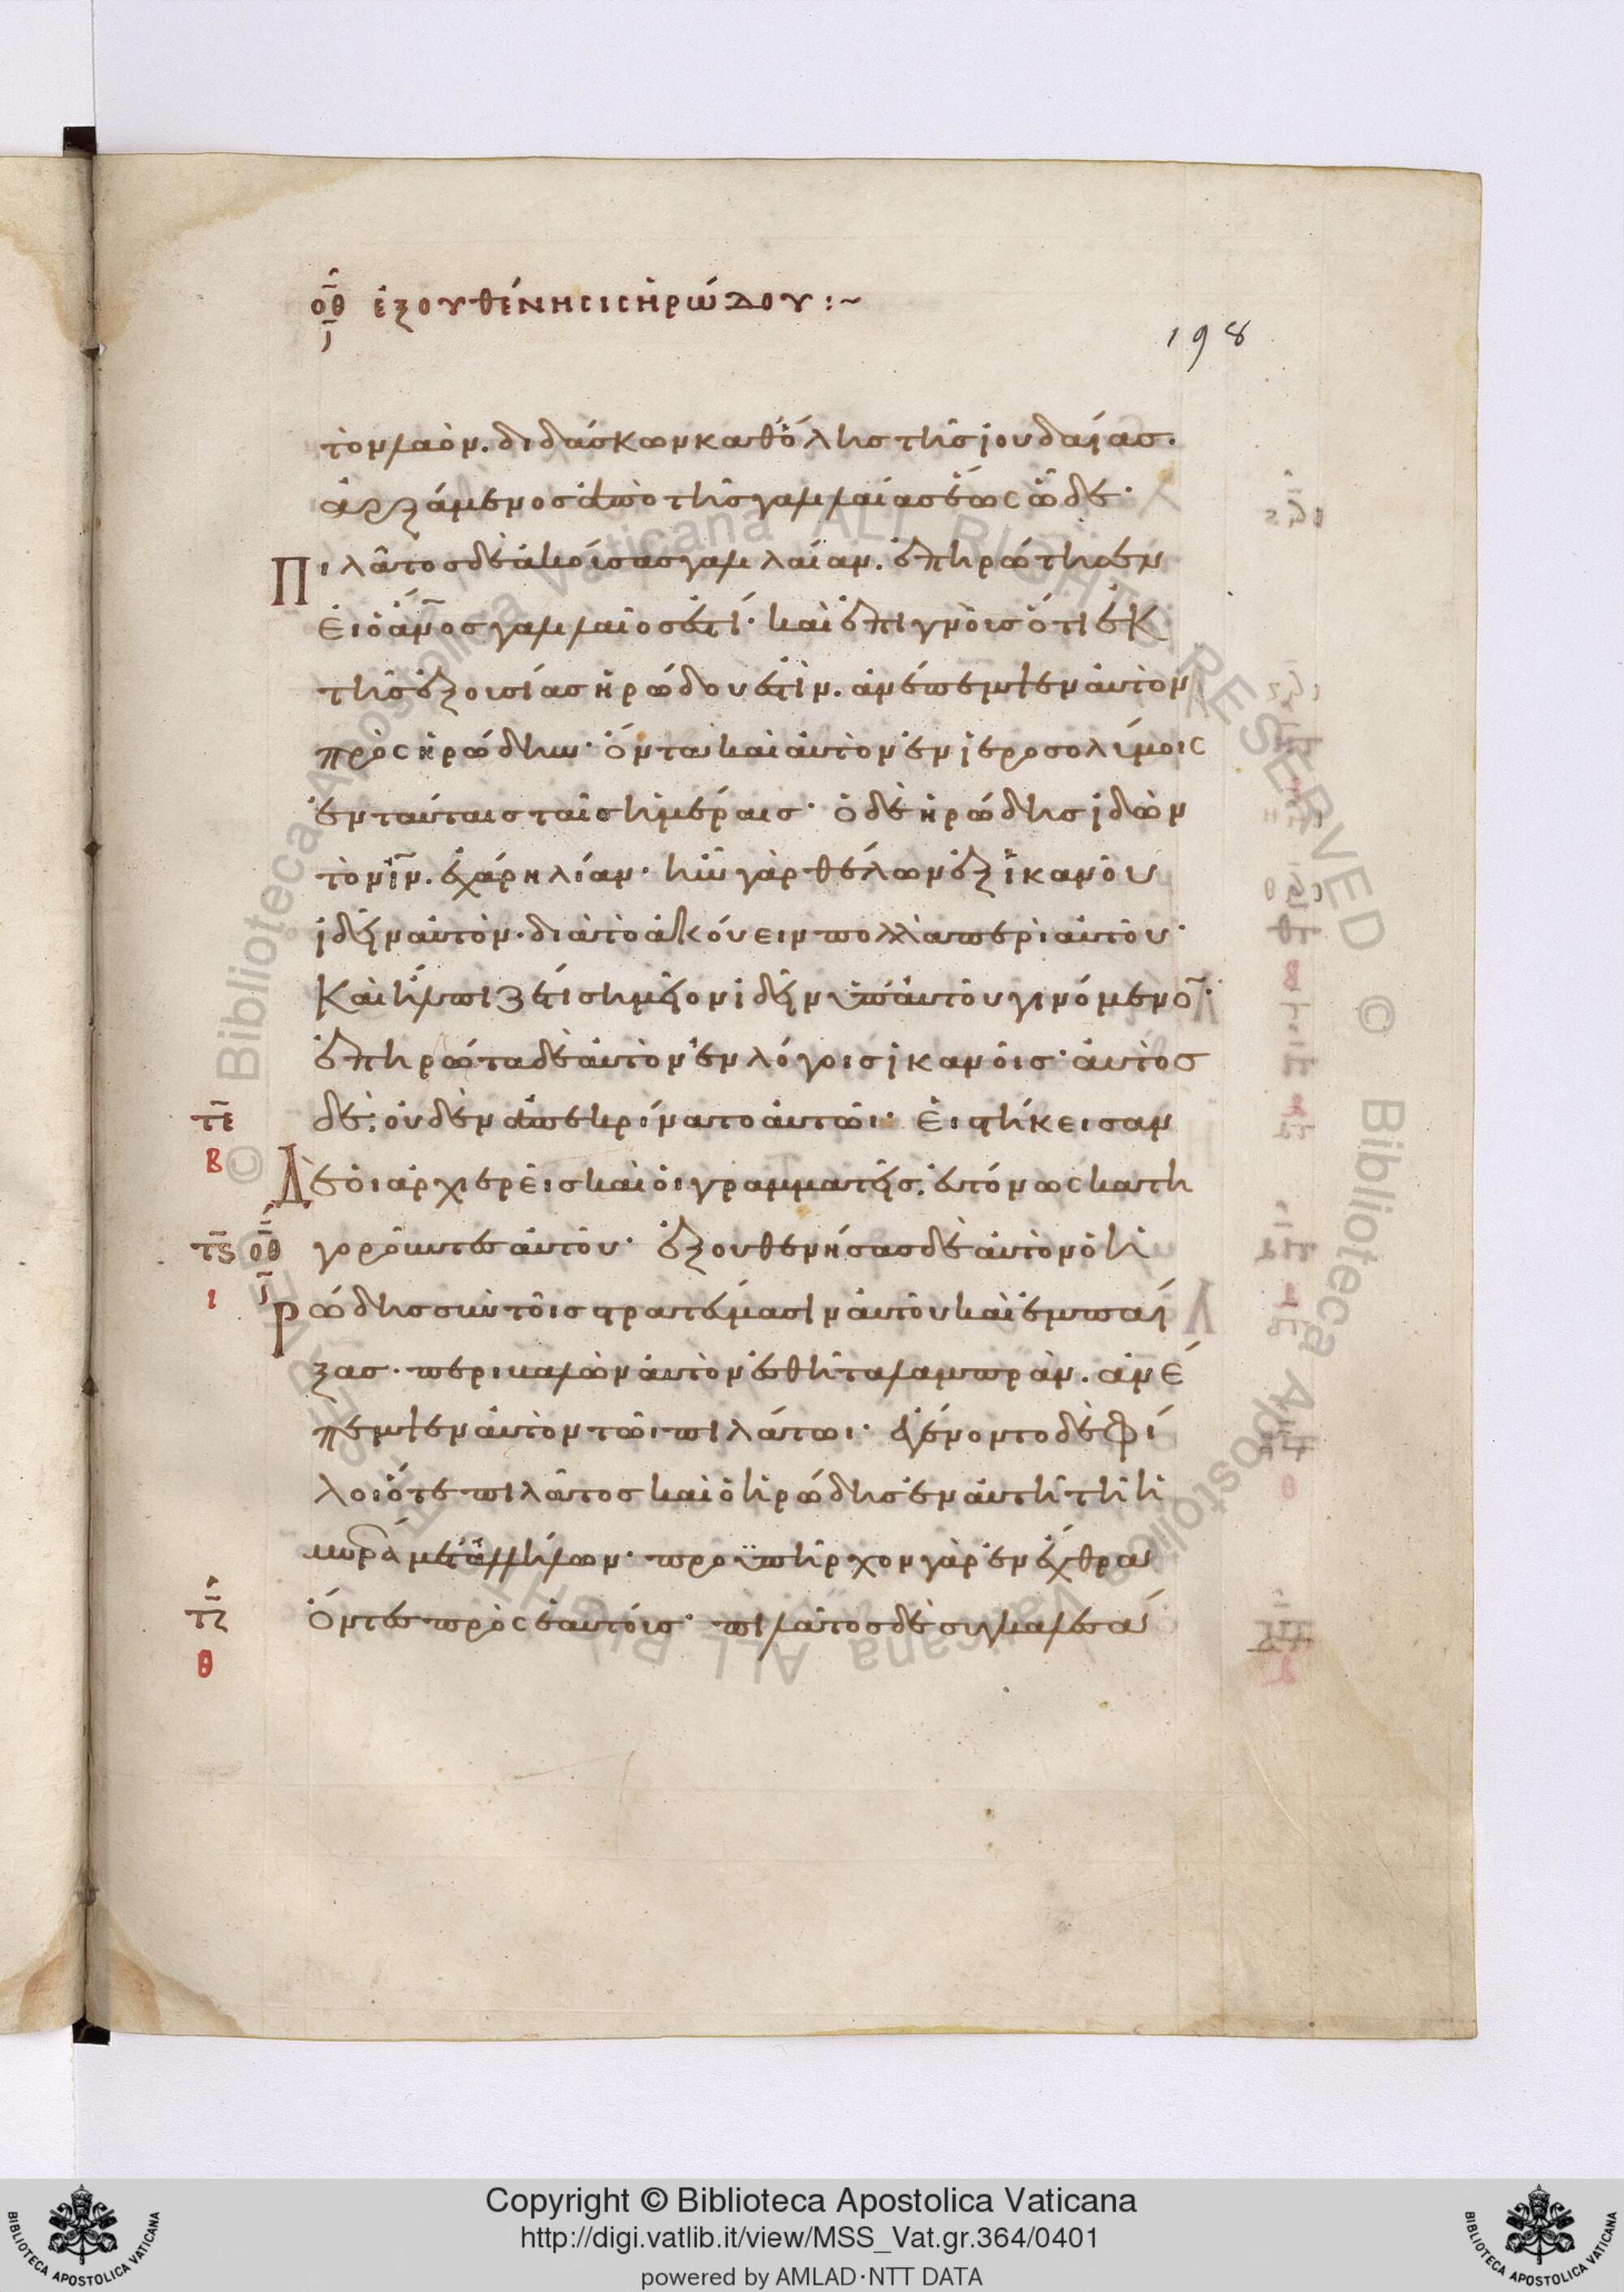 ο̅θ̅ ἐξουθένησις ἡρώδου :~
198
τὸν λαὸν. διδάσκων καθ' ὅλης τῆς ἰουδαίας.
ἀρξάμενος ἀπὸ τῆς γαλλιλαίας ἕως ὧδε·
Πιλᾶτος δὲ ἀκούσας γαλιλαίαν. ἐπηρώτησεν
εἰ ὁ ἄν̅ο̅ς γαλλιλαῖος ἐστί· καὶ ἐπιγνοὺς ὅτι ἐκ
τῆς ἐξουσίας ἡρώδου ἐστὶν. ἀνέπεμψεν αὐτὸν
πρὸς ἡρώδην· ὄντα καὶ αὐτὸν ἐν ἱεροσολύμοις
ἐν ταύταις ταῖς ἡμέραις· ὁ δὲ ἡρώδης ἰδὼν
τὸν ι̅ν̅. ἐχάρη λίαν· ἦν γὰρ θέλων ἐξ ἱκανοῦ
ἰδεῖν αὐτὸν. διὰ τὸ ἀκούειν πολλὰ περὶ αὐτοῦ·
Καὶ ἤλπιζέ τι σημεῖον ἰδεῖν ὑπ' αὐτοῦ γινόμενο̅·
ἐπηρώτα δὲ αὐτὸν ἐν λόγοις ἱκανοῖς· αὐτὸς
τ̅ε̅ δὲ; οὐδὲν ἀπεκρίνατο αὐτῶι· Εἱστήκεισαν
β Δὲ οἱ ἀρχιερεῖς καὶ οἱ γραμματεῖς. εὐτόνως κατη
τ̅ς̅ ο̅θ̅ γοροῦντες αὐτοῦ· ἐξουθενήσας δὲ αὐτὸν ὁ ἡ
ι ρώδης σὺν τοῖς στρατεύμασιν αὐτοῦ καὶ ἐμπαί
ξας· περιβαλὼν αὐτὸν ἐσθῆτα λαμπρὰν. ἀνέ
πεμψεν αὐτὸν τῶι πιλάτωι· ἐγένοντο δὲ φί
λοι ὅτε πιλᾶτος καὶ ὁ ἡρώδης ἐν αὐτῇ τῇ ἡ
μέρα μετ' ἀλλήλων· προϋπῆρχον γὰρ ἐν ἔχθρα
τ̅ζ̅ ὄντες πρὸς ἑαυτούς· πιλᾶτος δὲ συγκαλεσά
θ
Copyright © Biblioteca Apostolica Vaticana
http://digi.vatlib.it/view/MSS_Vat.gr.364/0401
powered by AMLAD·NTT DATA
BIBLIOTECA APOSTOLICA VATICANA
BIBLIOTECA APOSTOLICA VATICANA